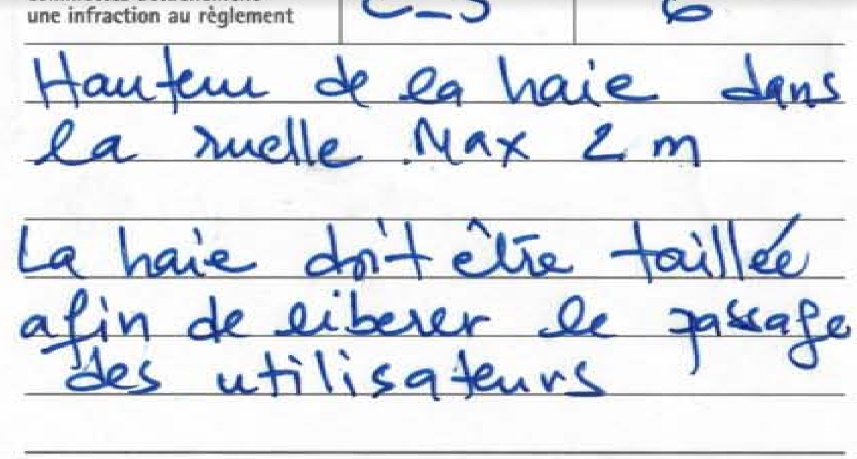 une infraction au règlement
Hauteur de la haie dans
la ruelle Max 2 m
La haie doit être taillée
afin de liberer le passage
des utilisateurs